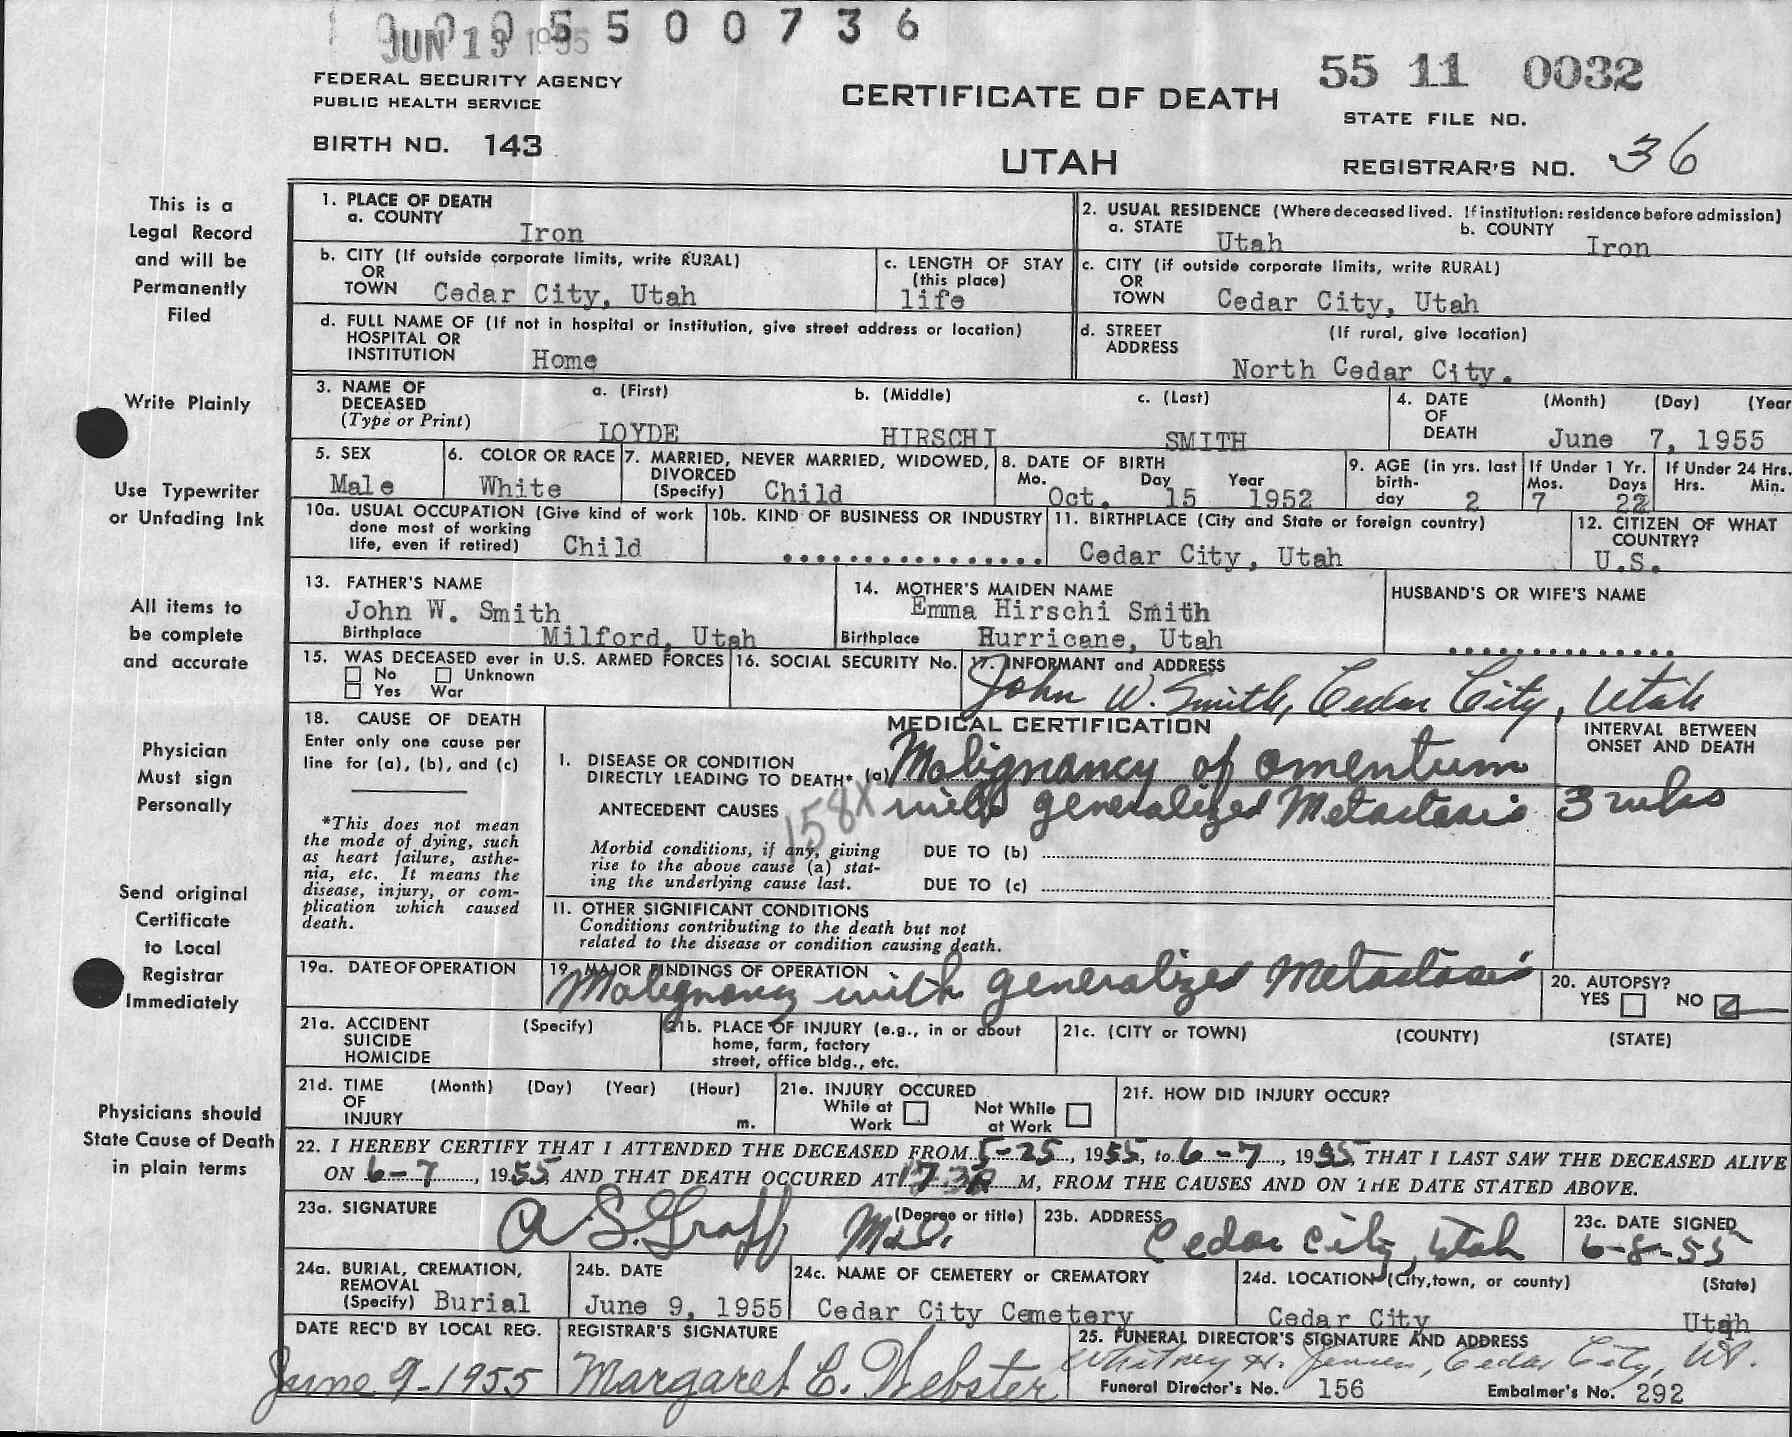 5 5 0 0 7 3 6
JUN 13 1955
55 11 0032
FEDERAL SECURITY AGENCY
PUBLIC HEALTH SERVICE
CERTIFICATE OF DEATH
STATE FILE NO.
BIRTH NO. 143
UTAH
REGISTRAR'S NO. 36
This is a
Legal Record
and will be
Permanently
Filed
Write Plainly
Use Typewriter
or Unfading Ink
All items to
be complete
and accurate
Physician
Must sign
Personally
Send original
Certificate
to Local
Registrar
Immediately
Physicians should
State Cause of Death
in plain terms
1. PLACE OF DEATH
a. COUNTY
Iron
2. USUAL RESIDENCE (Where deceased lived. If institution: residence before admission)
a. STATE Utah b. COUNTY Iron
b. CITY (If outside corporate limits, write RURAL)
OR
TOWN Cedar City, Utah
c. LENGTH OF STAY
(this place)
life
c. CITY (if outside corporate limits, write RURAL)
OR
TOWN Cedar City, Utah
d. FULL NAME OF (If not in hospital or institution, give street address or location)
HOSPITAL OR
INSTITUTION Home
d. STREET (If rural, give location)
ADDRESS
North Cedar City.
3. NAME OF DECEASED
(Type or Print)
a. (First) b. (Middle) c. (Last)
LOYDE HIRSCHI SMITH
4. DATE OF DEATH (Month) (Day) (Year
June 7, 1955
5. SEX
Male
6. COLOR OR RACE
White
7. MARRIED, NEVER MARRIED, WIDOWED,
DIVORCED
(Specify) Child
8. DATE OF BIRTH
Mo. Day Year
Oct. 15 1952
9. AGE (in yrs. last
birth-
day 2
If Under 1 Yr.
Mos. Days
7 22
If Under 24 Hrs.
Hrs. Min.
10a. USUAL OCCUPATION (Give kind of work
done most of working
life, even if retired) Child
10b. KIND OF BUSINESS OR INDUSTRY
11. BIRTHPLACE (City and State or foreign country)
Cedar City, Utah
12. CITIZEN OF WHAT
COUNTRY?
U.S.
13. FATHER'S NAME
John W. Smith
Birthplace Milford, Utah
14. MOTHER'S MAIDEN NAME
Emma Hirschi Smith
Birthplace Hurricane, Utah
HUSBAND'S OR WIFE'S NAME
15. WAS DECEASED ever in U.S. ARMED FORCES
No Unknown
Yes War
16. SOCIAL SECURITY No.
17. INFORMANT and ADDRESS
John W. Smith, Cedar City, Utah
18. CAUSE OF DEATH
Enter only one cause per
line for (a), (b), and (c)
*This does not mean
the mode of dying, such
as heart failure, asthe-
nia, etc. It means the
disease, injury, or com-
plication which caused
death.
MEDICAL CERTIFICATION
INTERVAL BETWEEN
ONSET AND DEATH
I. DISEASE OR CONDITION
DIRECTLY LEADING TO DEATH* (a) Malignancy of omentum
ANTECEDENT CAUSES 158X with generalized Metastasis 3 wks
Morbid conditions, if any, giving
rise to the above cause (a) stat-
ing the underlying cause last.
DUE TO (b)
DUE TO (c)
11. OTHER SIGNIFICANT CONDITIONS
Conditions contributing to the death but not
related to the disease or condition causing death.
19a. DATE OF OPERATION
19. MAJOR FINDINGS OF OPERATION
Malignancy with generalized Metastasis
20. AUTOPSY?
YES NO
21a. ACCIDENT (Specify)
SUICIDE
HOMICIDE
21b. PLACE OF INJURY (e.g., in or about
home, farm, factory
street, office bldg., etc.
21c. (CITY or TOWN) (COUNTY) (STATE)
21d. TIME (Month) (Day) (Year) (Hour)
OF
INJURY m.
21e. INJURY OCCURED
While at Work Not While at Work
21f. HOW DID INJURY OCCUR?
22. I HEREBY CERTIFY THAT I ATTENDED THE DECEASED FROM 5-25, 1955, to 6-7, 1955 THAT I LAST SAW THE DECEASED ALIVE
ON 6-7, 1955 AND THAT DEATH OCCURED AT M, FROM THE CAUSES AND ON THE DATE STATED ABOVE.
23a. SIGNATURE (Degree or title)
A S. Graff M.D.
23b. ADDRESS
Cedar City, Utah
23c. DATE SIGNED
6-8-55
24a. BURIAL, CREMATION,
REMOVAL
(Specify) Burial
24b. DATE
June 9, 1955
24c. NAME OF CEMETERY or CREMATORY
Cedar City Cemetery
24d. LOCATION (City, town, or county) (State)
Cedar City Utah
DATE REC'D BY LOCAL REG.
June 9-1955
REGISTRAR'S SIGNATURE
Margaret E. Webster
25. FUNERAL DIRECTOR'S SIGNATURE AND ADDRESS
Whitney H. Jensen, Cedar City, Ut.
Funeral Director's No. 156 Embalmer's No. 292